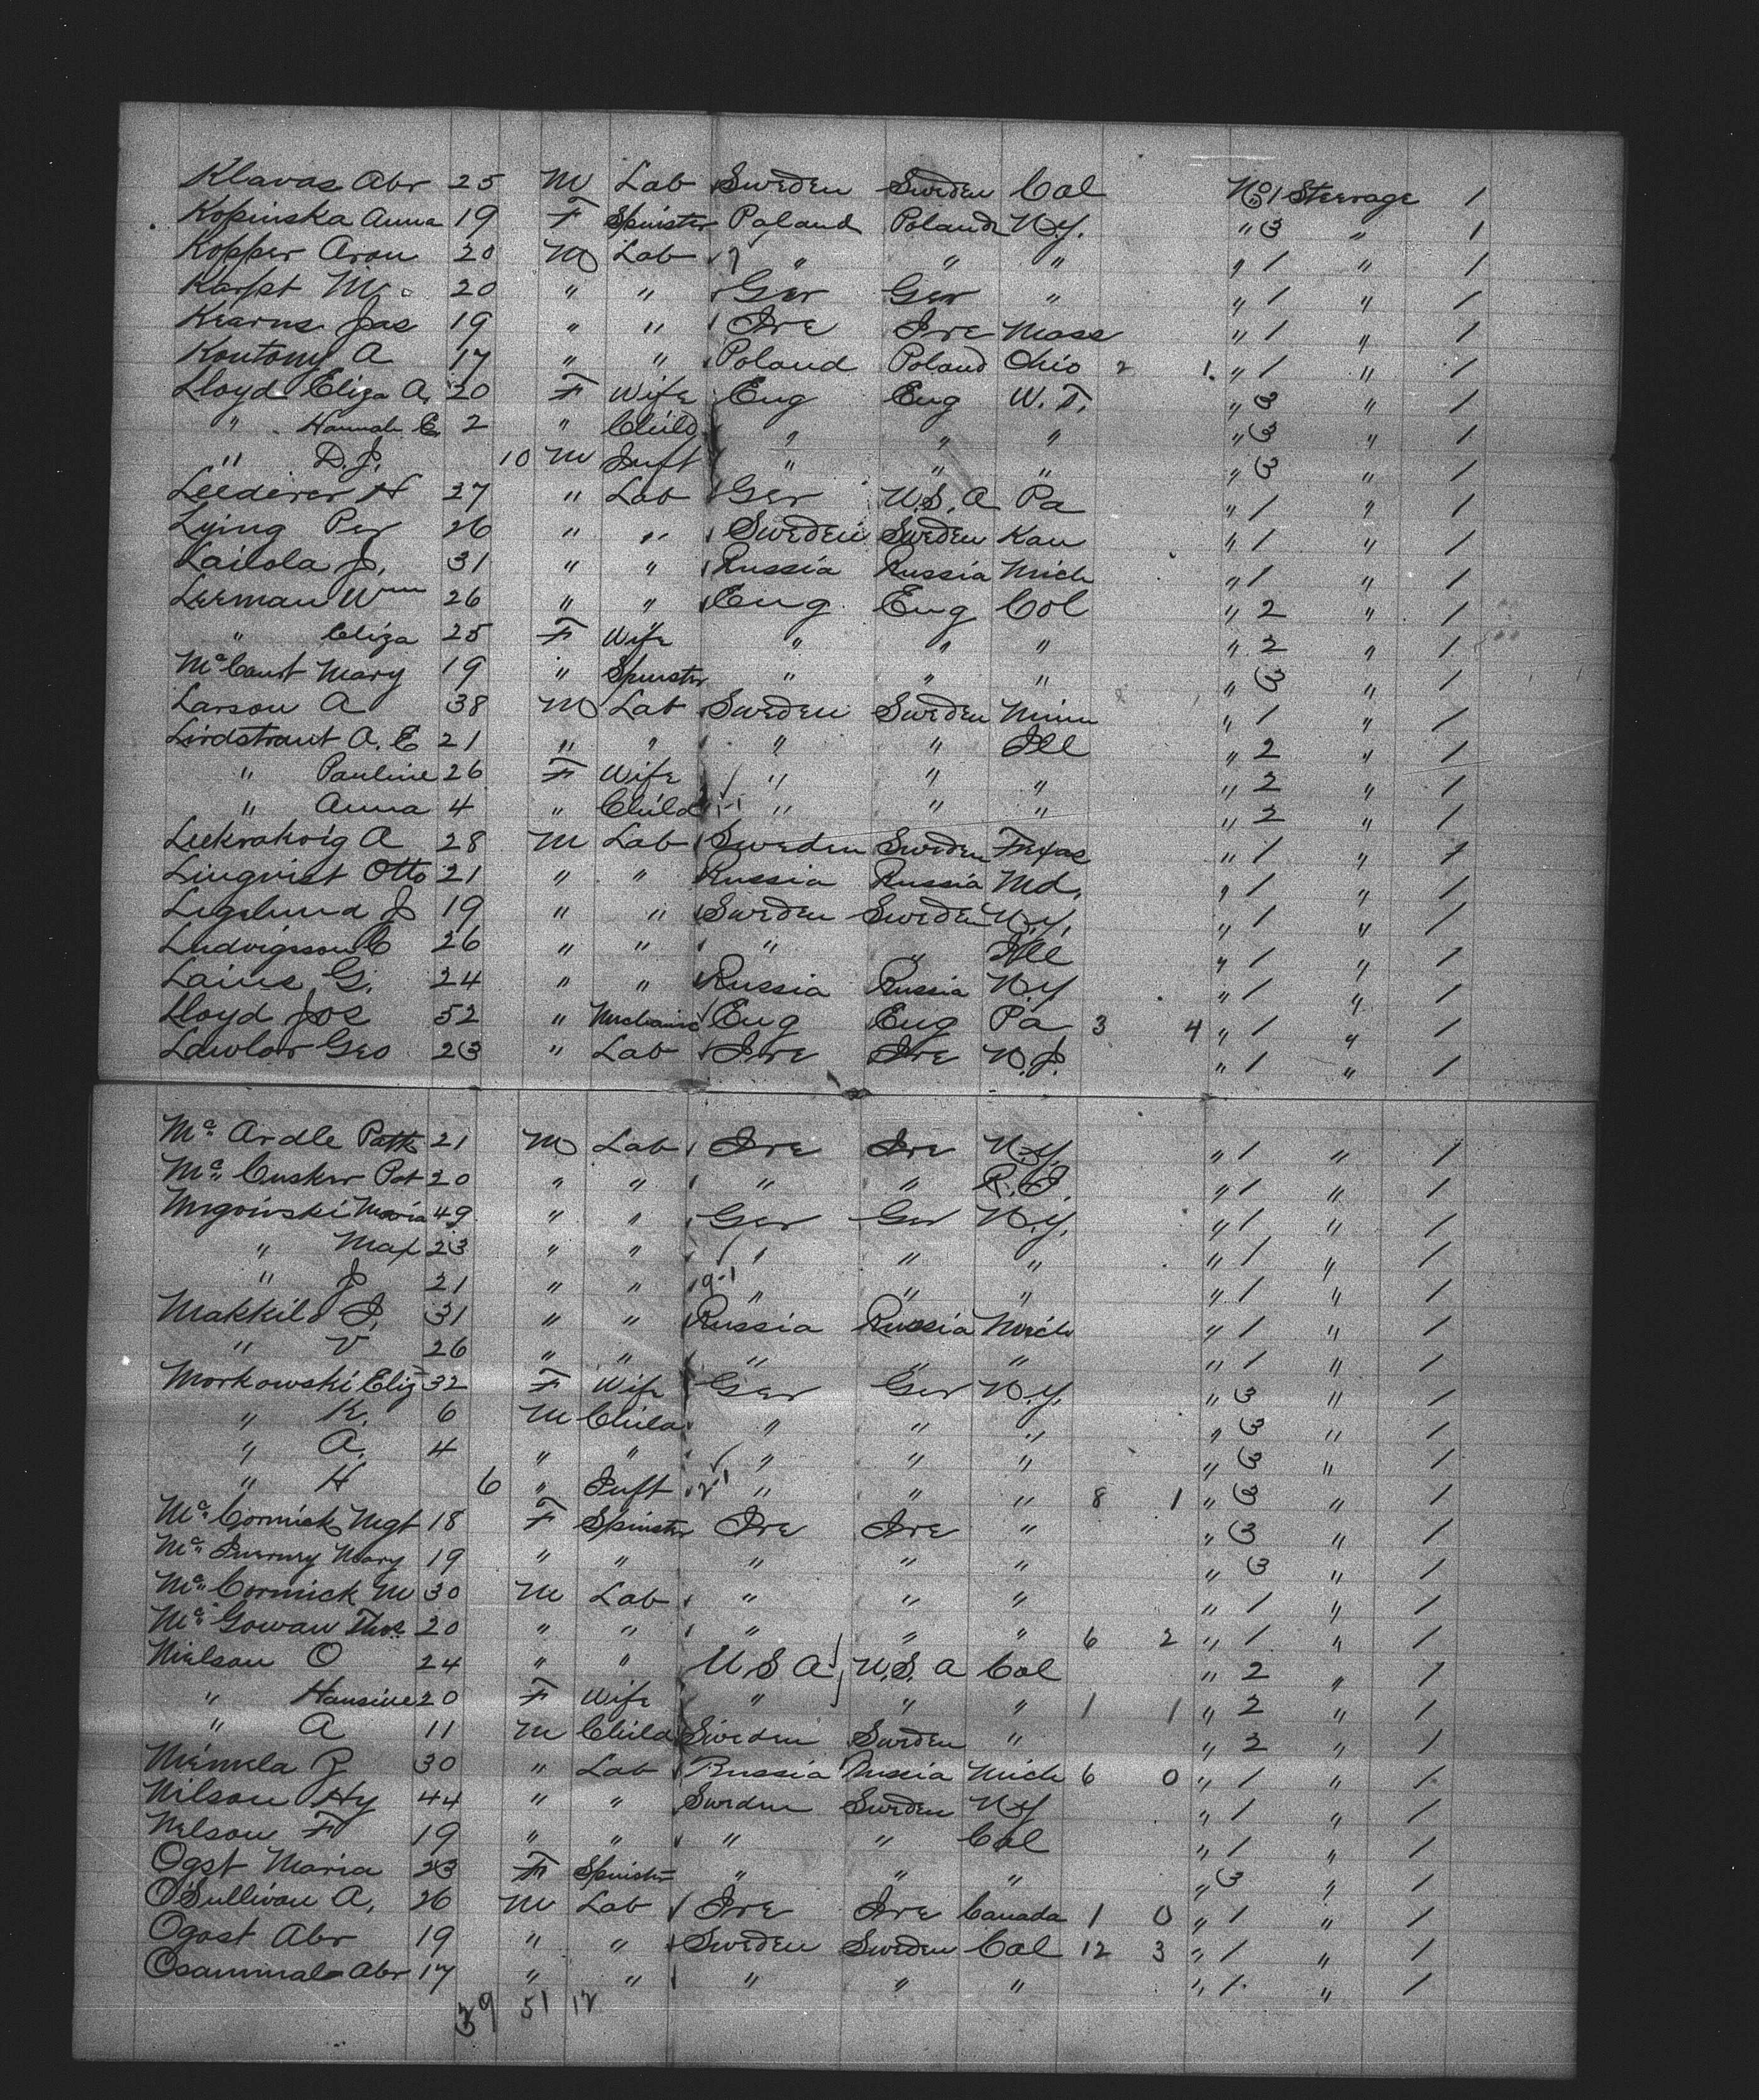 Klavas Abr 25 M Lab Sweden Sweden Cal No 1 Steerage 1
Kopinska Anna 19 F Spinster Poland Poland N.Y. " 3 " 1
Kopper Aron 20 M Lab " " " " 1 " 1
Karpt M. 20 " " Ger Ger " " 1 " 1
Kearns Jas 19 " " Ire Ire Mass " 1 " 1
Koutony A 17 " " Poland Poland Ohio 2 1. " 1 " 1
Lloyd Eliza A. 20 F Wife Eng Eng W.T. " 3 " 1
" Hannah E. 2 " Child " " " " 3 " 1
" D.J. 10 M Inft " " " " 3 " 1
Leederer H 27 " Lab Ger U.S.A Pa " 1 " 1
Lying Per 26 " " Sweden Sweden Kan " 1 " 1
Lailola J. 31 " " Russia Russia Mich " 1 " 1
Leeman Wm 26 " " Eng Eng Col " 2 " 1
" Eliza 25 F Wife " " " " 2 " 1
Mc Cant Mary 19 " Spinster " " " " 3 " 1
Larson A 38 M Lab Sweden Sweden Minn " 1 " 1
Lirdstrant A. E 21 " " " " Ill " 2 " 1
" Pauline 26 F Wife " " " " 2 " 1
" Anna 4 " Child " " " " 2 " 1
Leekrahoig A 28 M Lab Sweden Sweden Texas " 1 " 1
Linqvist Otto 21 " " Russia Russia Md. " 1 " 1
Legelund J 19 " " Sweden Sweden N.Y. " 1 " 1
Ludvigsson C 26 " " " " Ill " 1 " 1
Laius G. 24 " " Russia Russia N.Y " 1 " 1
Lloyd Jos 52 " Mechanic Eng Eng Pa 3 4 " 1 " 1
Lawlor Geo 23 " Lab Ire Ire N.J. " 1 " 1
Mc Ardle Patk 21 M Lab Ire Ire N.Y. " 1 " 1
Mc Cusker Pat 20 " " " " R.I. " 1 " 1
Migoinski Maria 49 " " Ger Ger N.Y. " 1 " 1
" Max 23 " " " " " " 1 " 1
" J 21 " " 9-1 " " " " 1 " 1
Makkild I. 31 " " Russia Russia Mich " 1 " 1
" V 26 " " " " " " 1 " 1
Morkowski Eliz 32 F Wife Ger Ger N.Y. " 3 " 1
" K. 6 M Child " " " " 3 " 1
" A. 4 " " " " " " 3 " 1
" H 6 " Inft " " " 8 1 " 3 " 1
Mc Cormick Mgt 18 F Spinster Ire Ire " " 3 " 1
Mc Inerny Mary 19 " " " " " " 3 " 1
Mc Cormick M 30 M Lab " " " " 1 " 1
Mc Gowan Thos 20 " " " " " 6 2 " 1 " 1
Nielson O 24 " " U S A U.S. A Cal " 2 " 1
" Hansine 20 F Wife " " " 1 1 " 2 " 1
" A 11 M Child Sweden Sweden " " 2 " 1
Niemela J 30 " Lab Russia Russia Mich 6 0 " 1 " 1
Nilson Hy 44 " " Sweden Sweden N.Y " 1 " 1
Nelson F 19 " " " " Cal " 1 " 1
Ogst Maria 23 F Spinster " " " " 3 " 1
O'Sullivan A. 26 M Lab Ire Ire Canada 1 0 " 1 " 1
Ogost Abr 19 " " Sweden Sweden Cal 12 3 " 1 " 1
Osammal Abr 17 " " " " " " 1 " 1
39 51 12